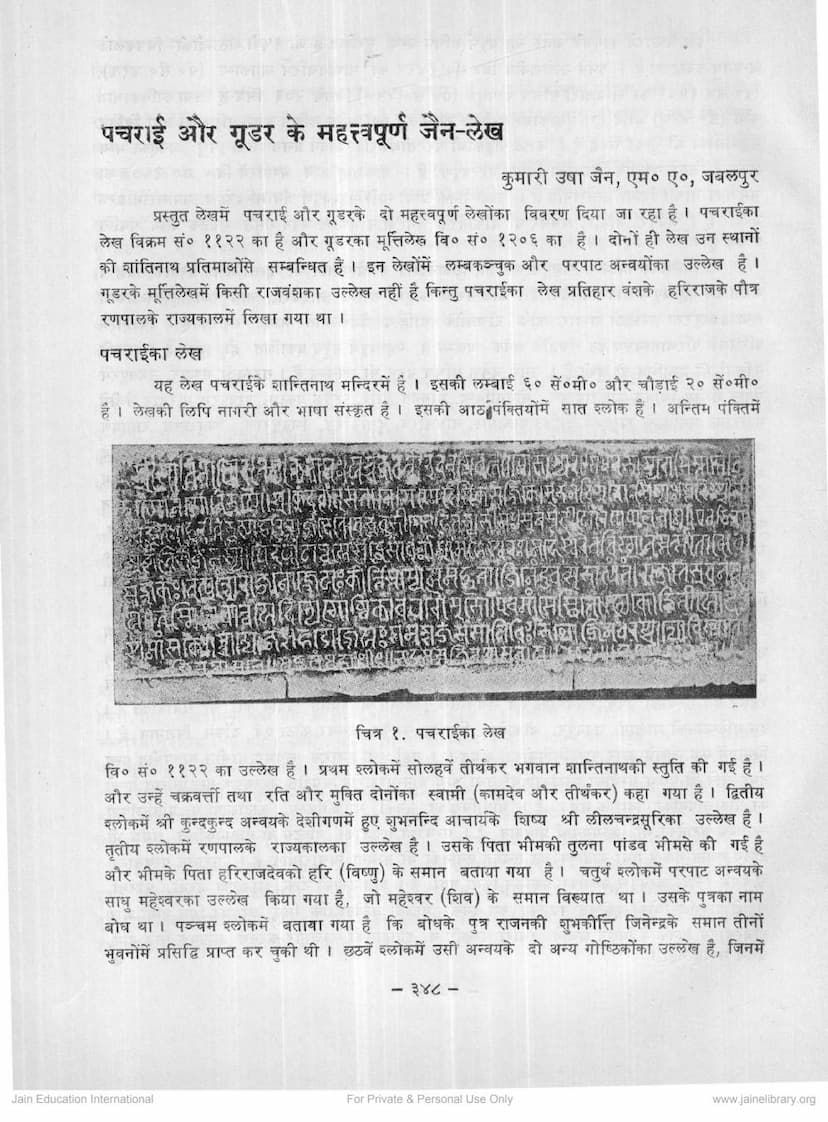 पचराई और गूडर के महत्त्वपूर्ण जैन-लेख
कुमारी उषा जैन, एम० ए०, जबलपुर
प्रस्तुत लेखमें पचराई और गूडरके दो महत्त्वपूर्ण लेखोंका विवरण दिया जा रहा है । पचराईका
लेख विक्रम सं० ११२२ का है और गूडरका मूर्त्तिलेख वि० सं० १२०६ का है । दोनों ही लेख उन स्थानों
की शांतिनाथ प्रतिमाओंसे सम्बन्धित हैं । इन लेखोंमें लम्बकञ्चुक और परपाट अन्वयोंका उल्लेख है ।
गूडरके मूर्त्तिलेखमें किसी राजवंशका उल्लेख नहीं है किन्तु पचराईका लेख प्रतिहार वंशके हरिराजके पौत्र
रणपालके राज्यकालमें लिखा गया था ।
पचराईका लेख
यह लेख पचराईके शान्तिनाथ मन्दिरमें है । इसकी लम्बाई ६० सें०मी० और चौड़ाई २० सें०मी०
है । लेखकी लिपि नागरी और भाषा संस्कृत है । इसकी आठ पंक्तियोंमें सात श्लोक हैं । अन्तिम पंक्तिमें
चित्र १. पचराईका लेख
वि० सं० ११२२ का उल्लेख है । प्रथम श्लोकमें सोलहवें तीर्थंकर भगवान शान्तिनाथकी स्तुति की गई है ।
और उन्हें चक्रवर्त्ती तथा रति और मुक्ति दोनोंका स्वामी (कामदेव और तीर्थंकर) कहा गया है । द्वितीय
श्लोकमें श्री कुन्दकुन्द अन्वयके देशीगणमें हुए शुभनन्दि आचार्यके शिष्य श्री लीलचन्द्रसूरिका उल्लेख है ।
तृतीय श्लोकमें रणपालके राज्यकालका उल्लेख है । उसके पिता भीमकी तुलना पांडव भीमसे की गई है
और भीमके पिता हरिराजदेवको हरि (विष्णु) के समान बताया गया है । चतुर्थ श्लोकमें परपाट अन्वयके
साधु महेश्वरका उल्लेख किया गया है, जो महेश्वर (शिव) के समान विख्यात था । उसके पुत्रका नाम
बोध था । पञ्चम श्लोकमें बताया गया है कि बोधके पुत्र राजनकी शुभकीर्त्ति जिनेन्द्रके समान तीनों
भुवनोंमें प्रसिद्धि प्राप्त कर चुकी थी । छठवें श्लोकमें उसी अन्वयके दो अन्य गोष्ठिकोंका उल्लेख है, जिनमें
– ३४८ –
Jain Education International
For Private & Personal Use Only
www.jainelibrary.org